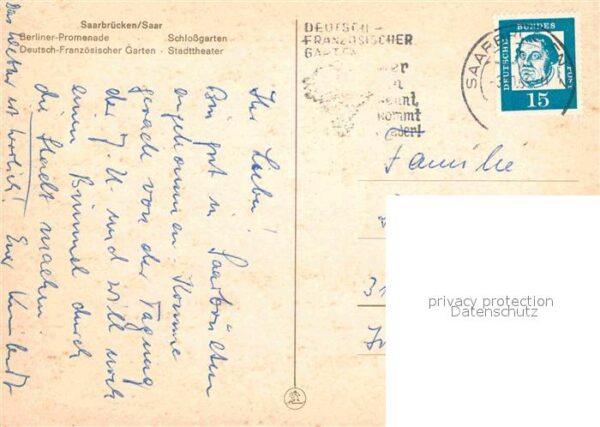 Saarbrücken/Saar
Berliner-Promenade - Schloßgarten
Deutsch-Französischer Garten - Stadttheater
DEUTSCH-
FRANZÖSISCHER
GARTEN
SAARB
DEUTSCHE BUNDES POST
15
Ihr Lieben!
Bin gut in Saarbrücken
angekommen. Komme
gerade von der Tagung
der J. U. und will noch
einen Bummel durch
die Stadt machen.
Das Wetter ist herrlich! Euer
Familie
31
privacy protection
Datenschutz